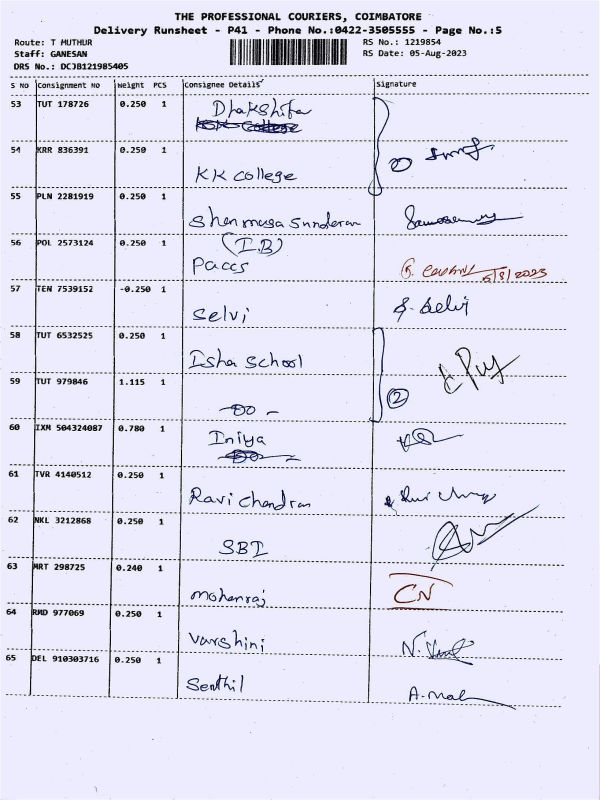 THE PROFESSIONAL COURIERS, COIMBATORE
Delivery Runsheet - P41 - Phone No.:0422-3505555 - Page No.:5
Route: T MUTHUR RS No.: 1219854
Staff: GANESAN RS Date: 05-Aug-2023
DRS No.: DCJB121985405
S NO Consignment No Weight PCS Consignee Details Signature
53 TUT 178726 0.250 1 Dhakshita
KK College
54 KRR 836391 0.250 1 KK college
55 PLN 2281919 0.250 1 Shanmuga Sunderam
56 POL 2573124 0.250 1 (I.B)
Paccs 5/8/2023
57 TEN 7539152 -0.250 1 Selvi S. Selvi
58 TUT 6532525 0.250 1 Isha School
59 TUT 979846 1.115 1 -Do- 2
60 IXM 504324087 0.780 1 Iniya
Do
61 TVR 4140512 0.250 1 Ravi chandran
62 NKL 3212868 0.250 1 SBI
63 MRT 298725 0.240 1 mohanraj CN
64 RMD 977069 0.250 1 Varshini
65 DEL 910303716 0.250 1 Senthil